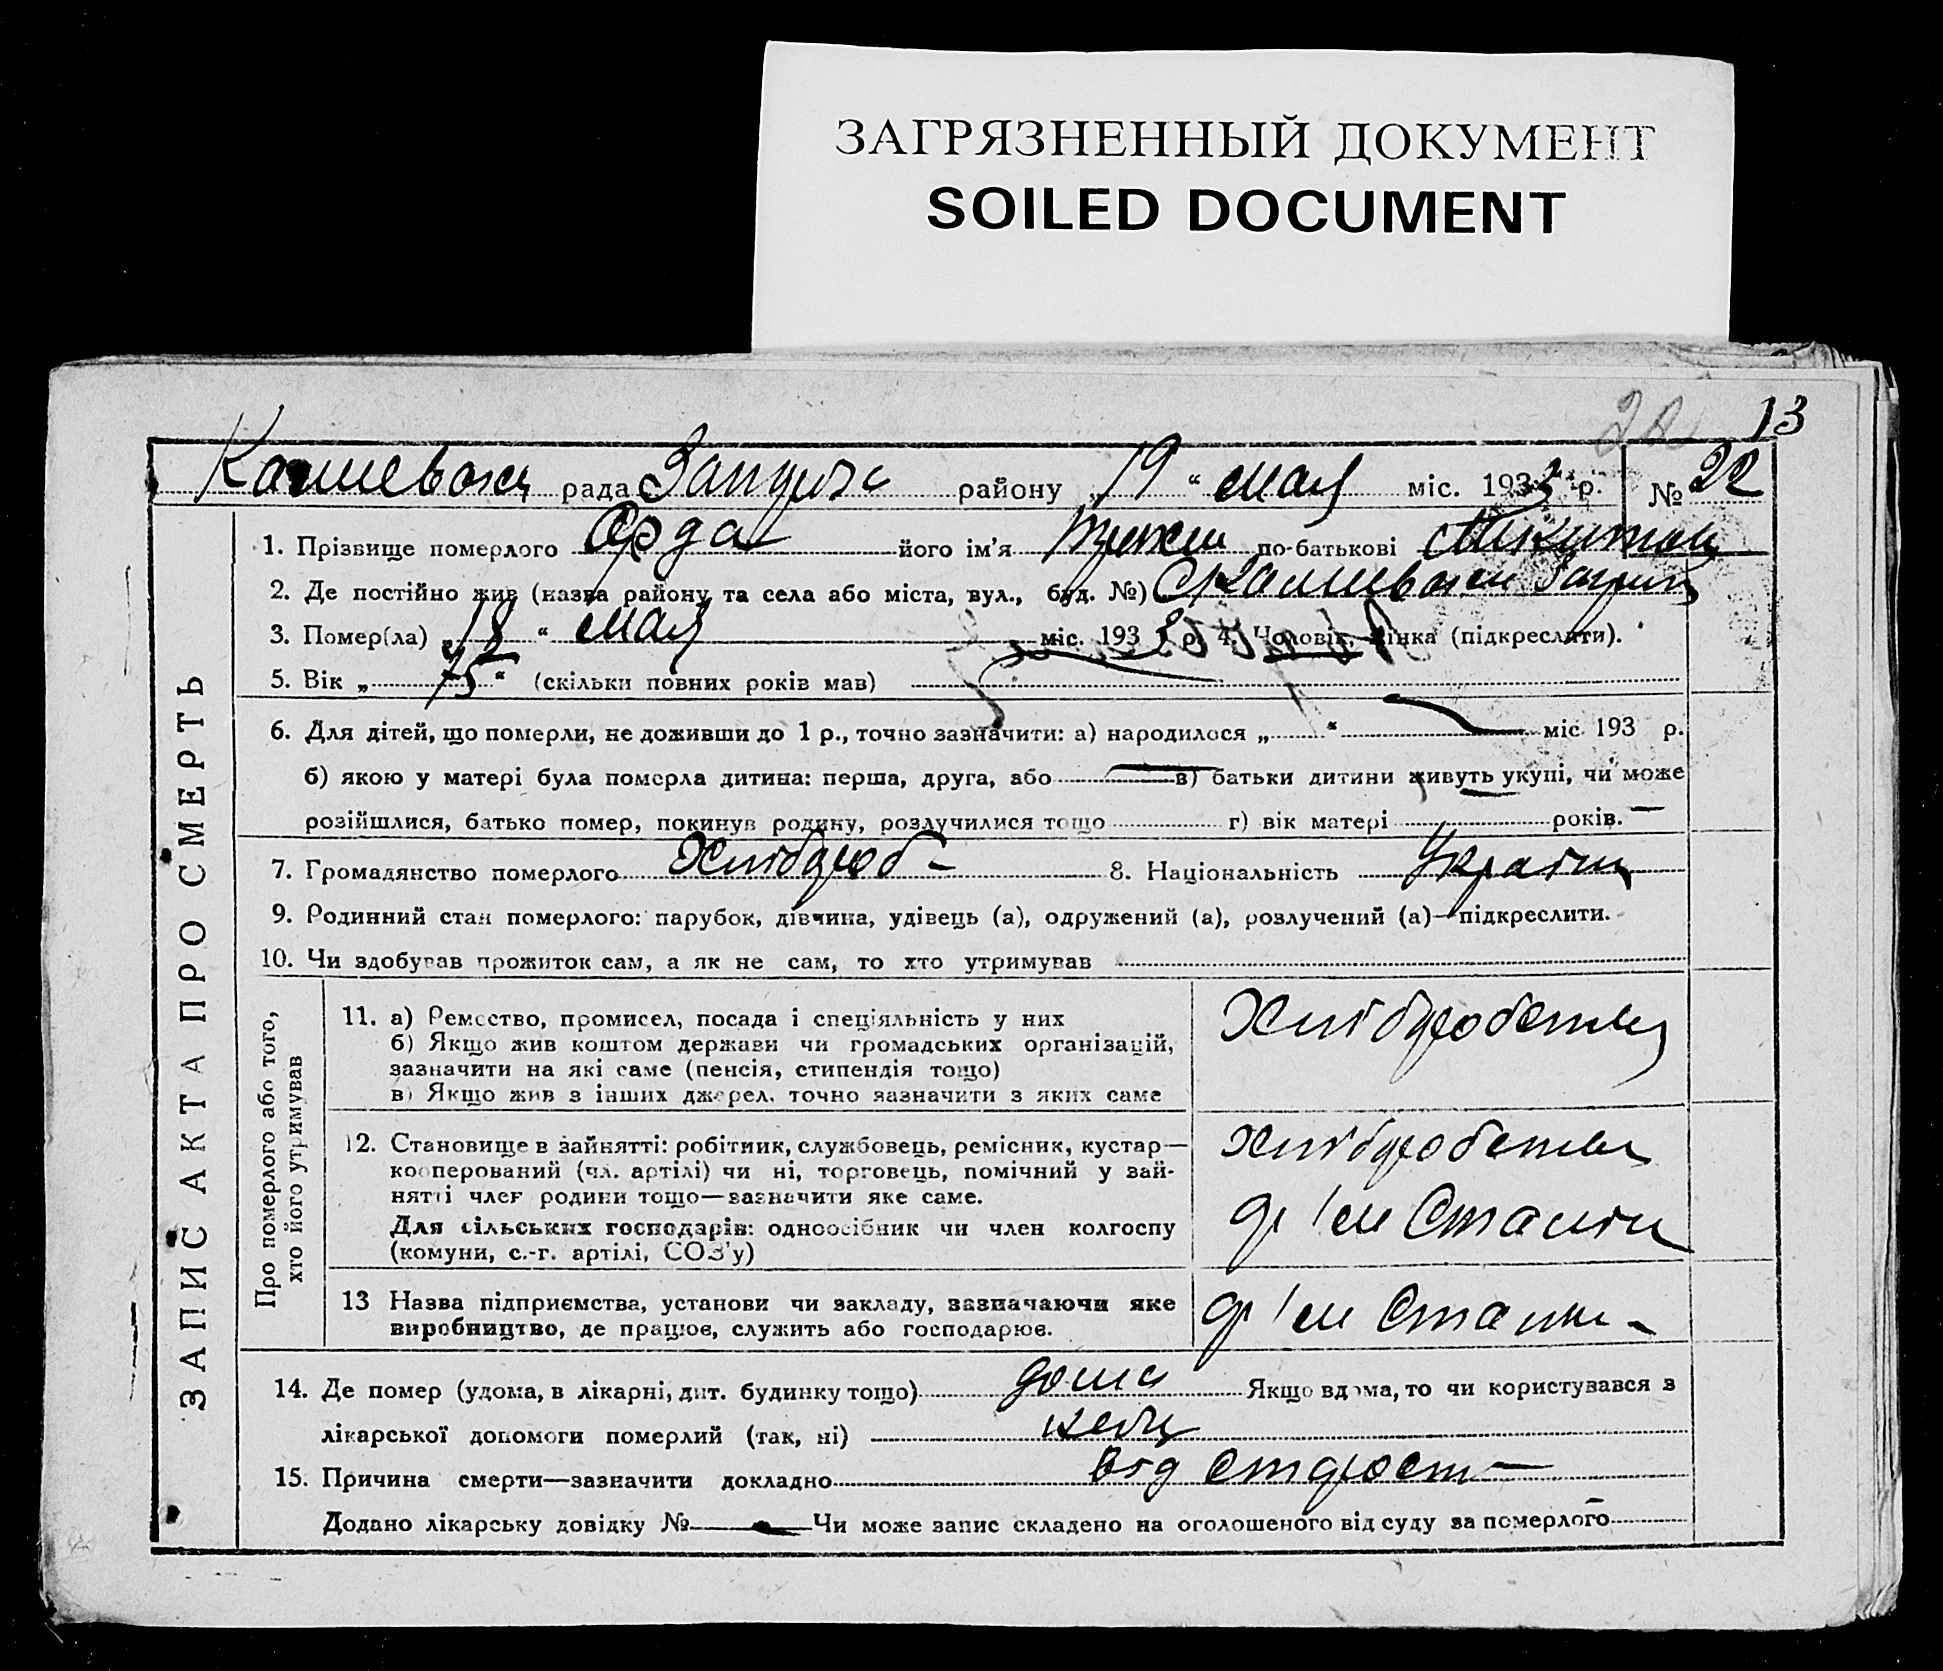 ЗАГРЯЗНЕННЫЙ ДОКУМЕНТ
SOILED DOCUMENT
13
рада району 19 " мая міс. 1933 р. № 22
1. Прізвище померлого Орда його ім'я по-батькові
2. Де постійно жив (назва району та села або міста, вул., буд. №)
3. Помер(ла) „ 18 " мая міс. 1933 р. 4. Чоловік, жінка (підкреслити).
5. Вік „ 75 " (скільки повних років мав)
6. Для дітей, що померли, не доживши до 1 р., точно зазначити: а) народилося „ " міс. 193 р.
б) якою у матері була померла дитина: перша, друга, або в) батьки дитини живуть укупі, чи може
розійшлися, батько помер, покинув родину, розлучилися тощо г) вік матері років.
7. Громадянство померлого Хлібороб 8. Національність
9. Родинний стан померлого: парубок, дівчина, удівець (а), одружений (а), розлучений (а)—підкреслити.
10. Чи здобував прожиток сам, а як не сам, то хто утримував
ЗАПИС АКТА ПРО СМЕРТЬ
Про померлого або того,
хто його утримував
11. а) Ремество, промисел, посада і спеціяльність у них
б) Якщо жив коштом держави чи громадських організацій,
зазначити на які саме (пенсія, стипендія тощо)
в) Якщо жив з інших джерел, точно зазначити з яких саме
12. Становище в зайнятті: робітник, службовець, ремісник, кустар—
кооперований (чл. артілі) чи ні, торговець, помічний у зай-
нятті член родини тощо—зазначити яке саме.
Для сільських господарів: одноосібник чи член колгоспу
(комуни, с.-г. артілі, СОЗ'у)
13 Назва підприємства, установи чи закладу, зазначаючи яке
виробництво, де працює, служить або господарює.
14. Де помер (удома, в лікарні, дит. будинку тощо) дома Якщо вдома, то чи користувався з
лікарської допомоги померлий (так, ні)
15. Причина смерти—зазначити докладно від старости
Додано лікарську довідку № — Чи може запис складено на оголошеного від суду за померлого —